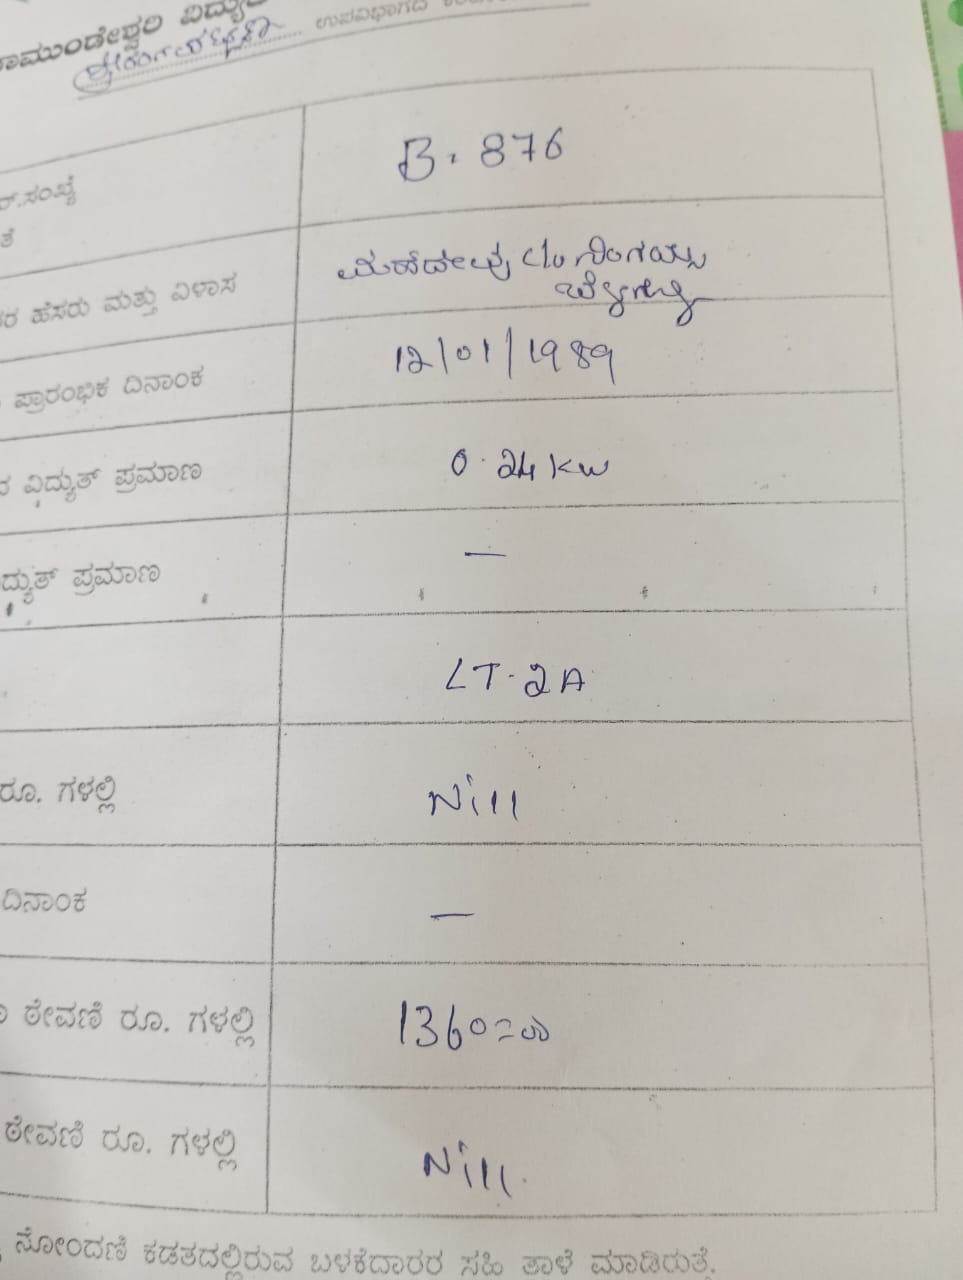 ಾಮುಂಡೇಶ್ವರಿ ವಿದ್ಯು
ಉಪವಿಭಾಗದ
ರ್.ಸಂಖ್ಯೆ
ತೆ
B. 876
ರ ಹೆಸರು ಮತ್ತು ವಿಳಾಸ
ಮಹದೇವು c/o ನಿಂಗಯ್ಯ
ಪ್ರಾರಂಭಿಕ ದಿನಾಂಕ
12/01/1989
ವಿದ್ಯುತ್ ಪ್ರಮಾಣ
0.24 KW
ದ್ಯುತ್ ಪ್ರಮಾಣ
—
LT-2A
ರೂ. ಗಳಲ್ಲಿ
Nill
ದಿನಾಂಕ
—
ಠೇವಣಿ ರೂ. ಗಳಲ್ಲಿ
1360=00
ಠೇವಣಿ ರೂ. ಗಳಲ್ಲಿ
Nill.
ನೋಂದಣಿ ಕಡತದಲ್ಲಿರುವ ಬಳಕೆದಾರರ ಸಹಿ ತಾಳೆ ಮಾಡಿರುತ್ತೆ.